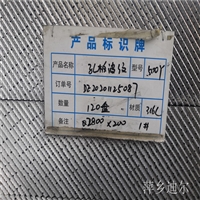 产品标识牌
产品名称 孔板波纹 型号 500Y
订单号 D20201125087
数量 120盘 材质 316L
备注 φ2800×200 1#
萍乡迪尔